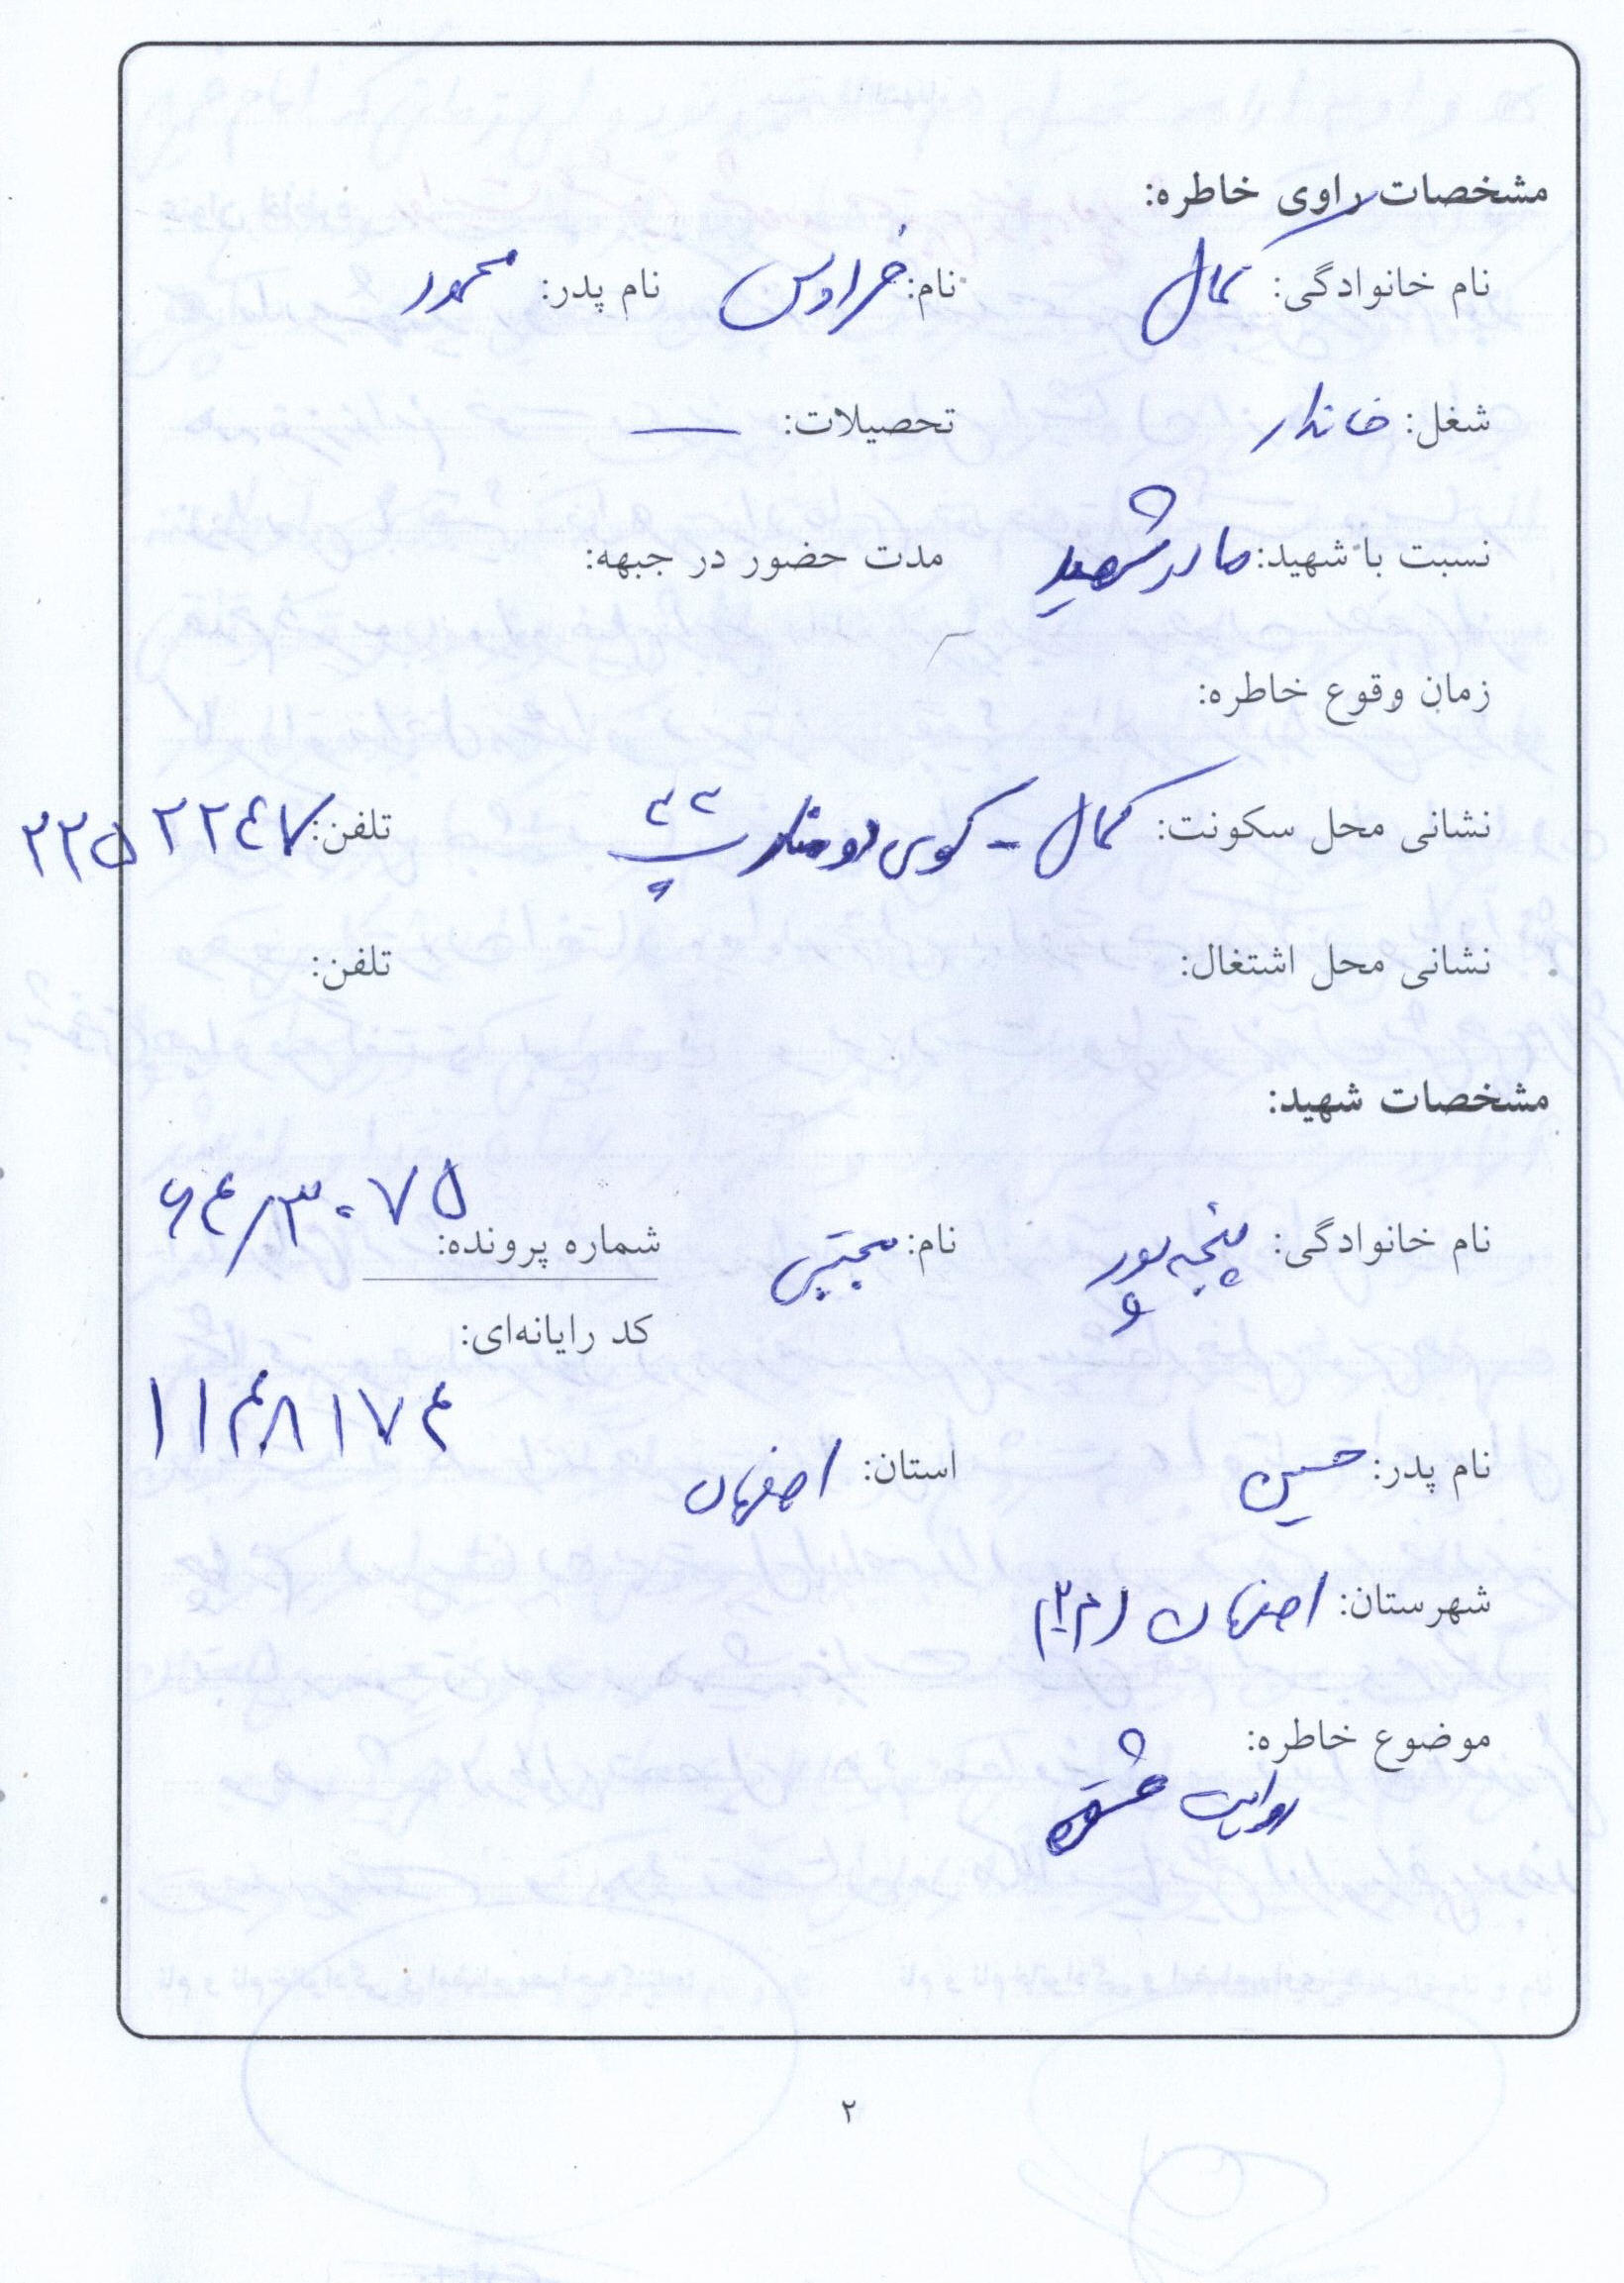 مشخصات راوی خاطره:
نام خانوادگی: کمال نام: فردوس نام پدر: محمود
شغل: خانه‌دار تحصیلات: —
نسبت با شهید: مادر شهید مدت حضور در جبهه:
زمان وقوع خاطره:
نشانی محل سکونت: کمال - کوی دومنار پ ۲۲ تلفن: ۲۲۵۲۲۴۷
نشانی محل اشتغال: تلفن:
مشخصات شهید:
نام خانوادگی: پنجه پور نام: مجتبی شماره پرونده: ۶۴/۳۰۷۵
کد رایانه‌ای:
۱۱۴۸۱۷۴
نام پدر: حسین استان: اصفهان
شهرستان: اصفهان
موضوع خاطره:
روایت عشق
۲